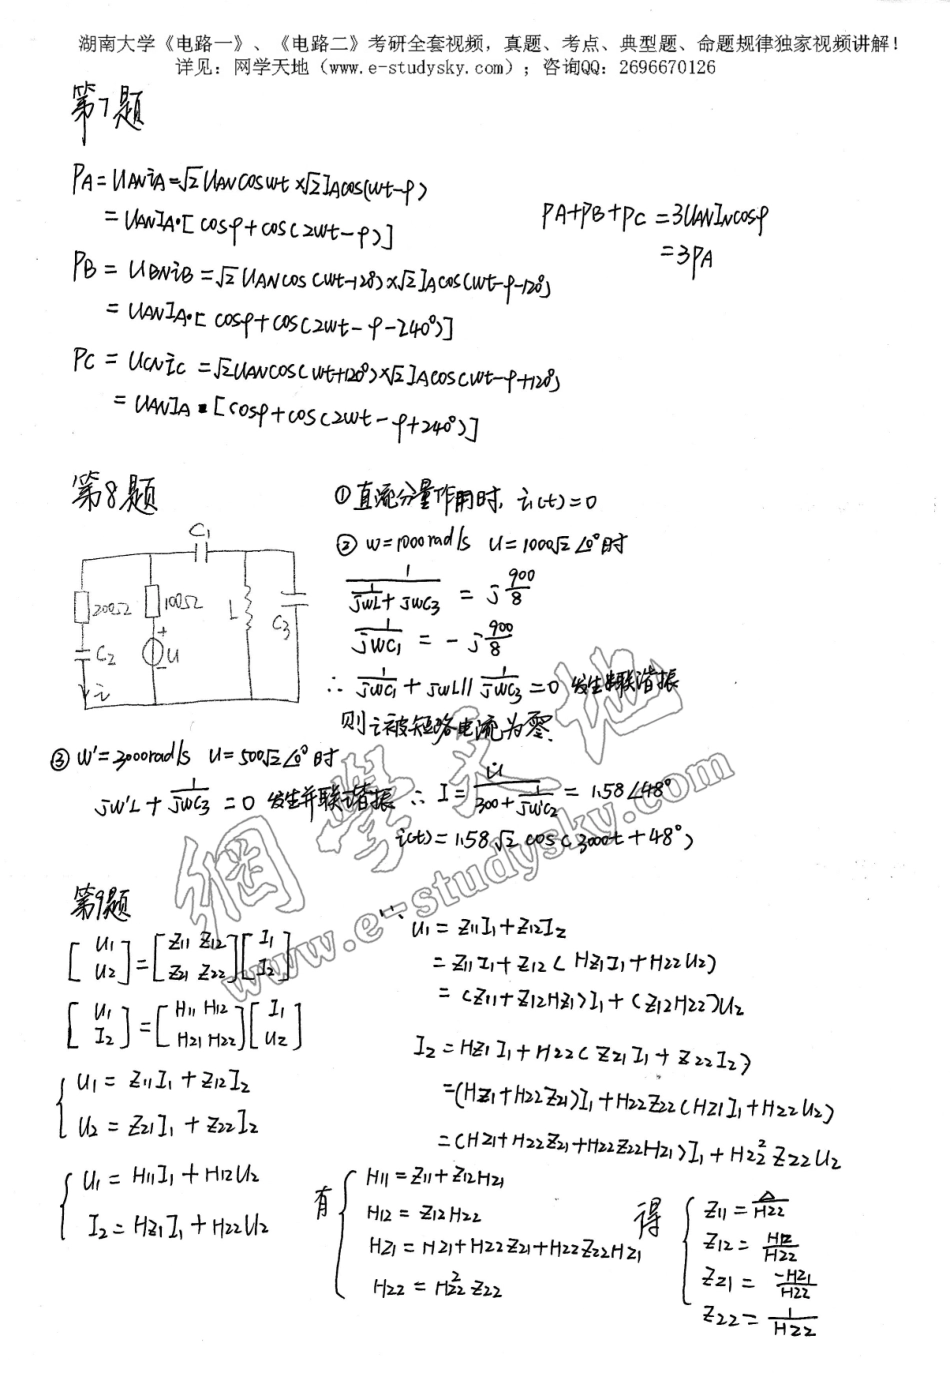 湖南大学《电路一》、《电路二》考研全套视频，真题、考点、典型题、命题规律独家视频讲解！
详见：网学天地（www.e-studysky.com）；咨询QQ：2696670126
第7题
PA=UANiA=√2UANcoswt×√2IAcos(wt-φ)
=UANIA·[cosφ+cos(2wt-φ)]
PB=UBNiB=√2UANcos(wt-120°)×√2IAcos(wt-φ-120°)
=UANIA·[cosφ+cos(2wt-φ-240°)]
PC=UCNiC=√2UANcos(wt+120°)×√2IAcos(wt-φ+120°)
=UANIA·[cosφ+cos(2wt-φ+240°)]
PA+PB+PC=3UANINcosφ
=3PA
第8题
C1
200Ω
100Ω
L
C3
C2
+
U
-
i
①直流分量作用时，i1(t)=0
②w=1000rad/s U=1000√2∠0°时
1/(1/jwL+jwC3)=j900/8
1/jwC1=-j900/8
∴1/jwC1+jwL//1/jwC3=0 发生串联谐振
则i被短路电流为零.
③w'=3000rad/s U=500√2∠0°时
jw'L+1/jwC3=0 发生并联谐振 ∴I=U̇/(300+1/jw'C2)=1.58∠48°
i(t)=1.58√2cos(3000t+48°)
網學天地
www.e-studysky.com
第9题
[U1 U2]=[Z11 Z12 Z21 Z22][I1 I2]
[U1 I2]=[H11 H12 H21 H22][I1 U2]
{U1=Z11I1+Z12I2
U2=Z21I1+Z22I2
{U1=H11I1+H12U2
I2=H21I1+H22U2
∵U1=Z11I1+Z12I2
=Z11I1+Z12(H21I1+H22U2)
=(Z11+Z12H21)I1+(Z12H22)U2
I2=H21I1+H22(Z21I1+Z22I2)
=(H21+H22Z21)I1+H22Z22(H21I1+H22U2)
=(H21+H22Z21+H22Z22H21)I1+H22²Z22U2
有{H11=Z11+Z12H21
H12=Z12H22
H21=H21+H22Z21+H22Z22H21
H22=H22²Z22
得{Z11=Δ/H22
Z12=H12/H22
Z21=-H21/H22
Z22=1/H22